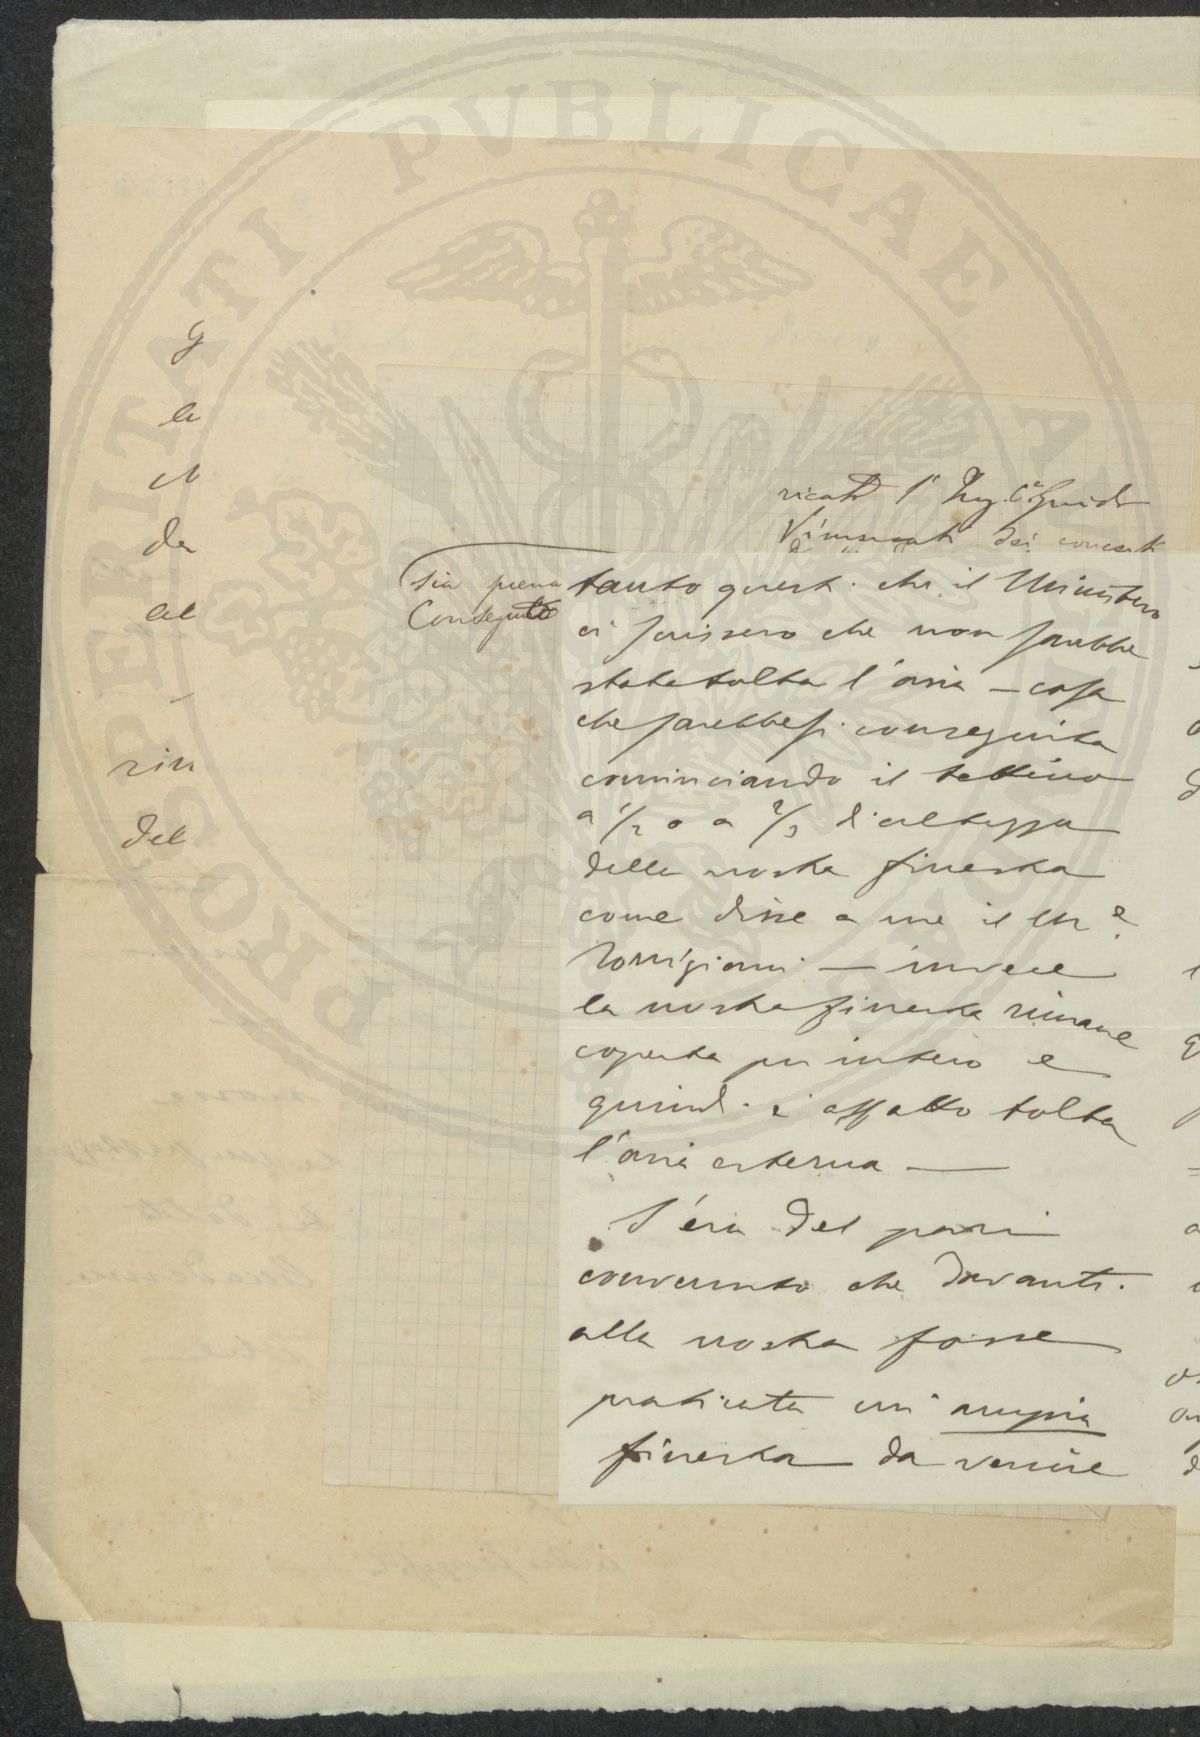 PROSPERITATI PVBLICAE
G
le
N
da
al
rin
del
ricati l' Ing. Guido
dei concerti
sia piena
Conseguito
tanto questi che il Ministero
ci scrissero che non sarebbe
stata tolta l'aria — cosa
che sarebbesi conseguita
cominciando il tettino
a 1/2 o a 2/3 d'altezza
della nostra finestra
come disse a me il
Torrigiani — invece
la nostra finestra rimane
coperta per intero e
quindi è affatto tolta
l'aria esterna —
S'era del pari
convenuto che davanti
alla nostra fosse
praticata un' ampia
finestra da venire